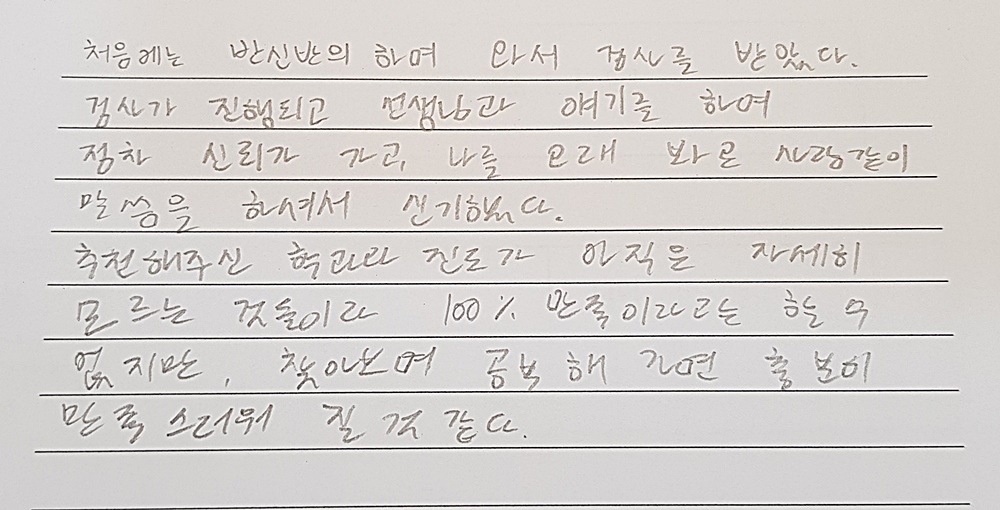 처음에는 반신반의 하며 와서 검사를 받았다.
검사가 진행되고 선생님과 얘기를 하며
점차 신뢰가 가고, 나를 오래 봐온 사람같이
말씀을 하셔서 신기했다.
추천해주신 학과와 진로가 아직은 자세히
모르는 것들이라 100% 만족이라고는 할 수
없지만, 찾아보며 공부해 가면 충분히
만족스러워 질 것 같다.